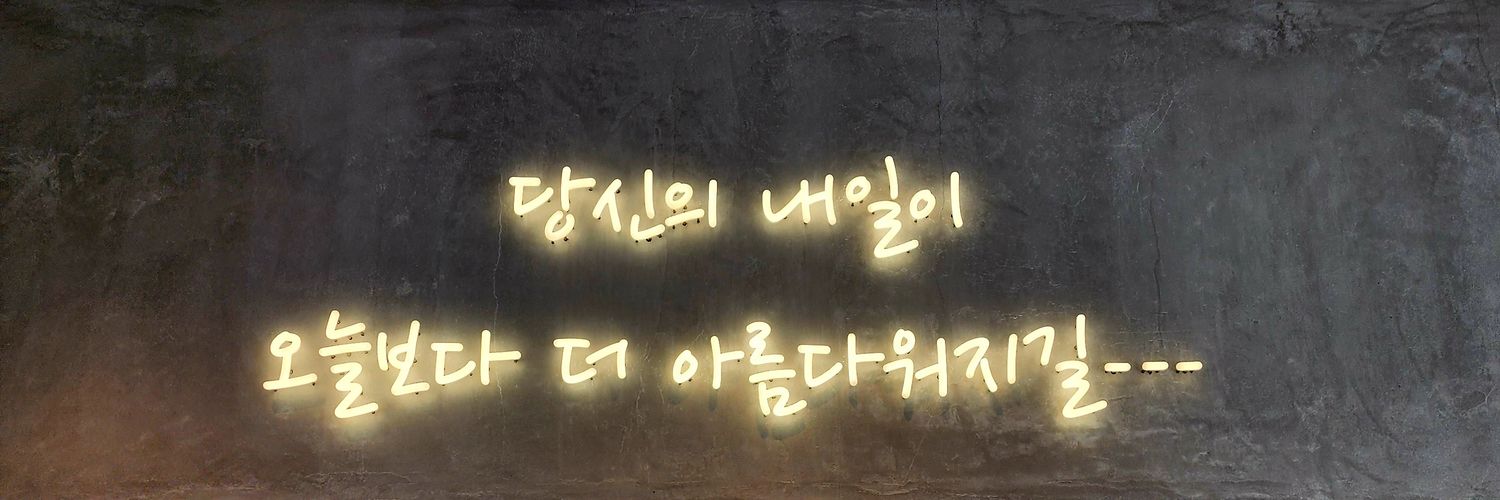 당신의 내일이
오늘보다 더 아름다워지길---